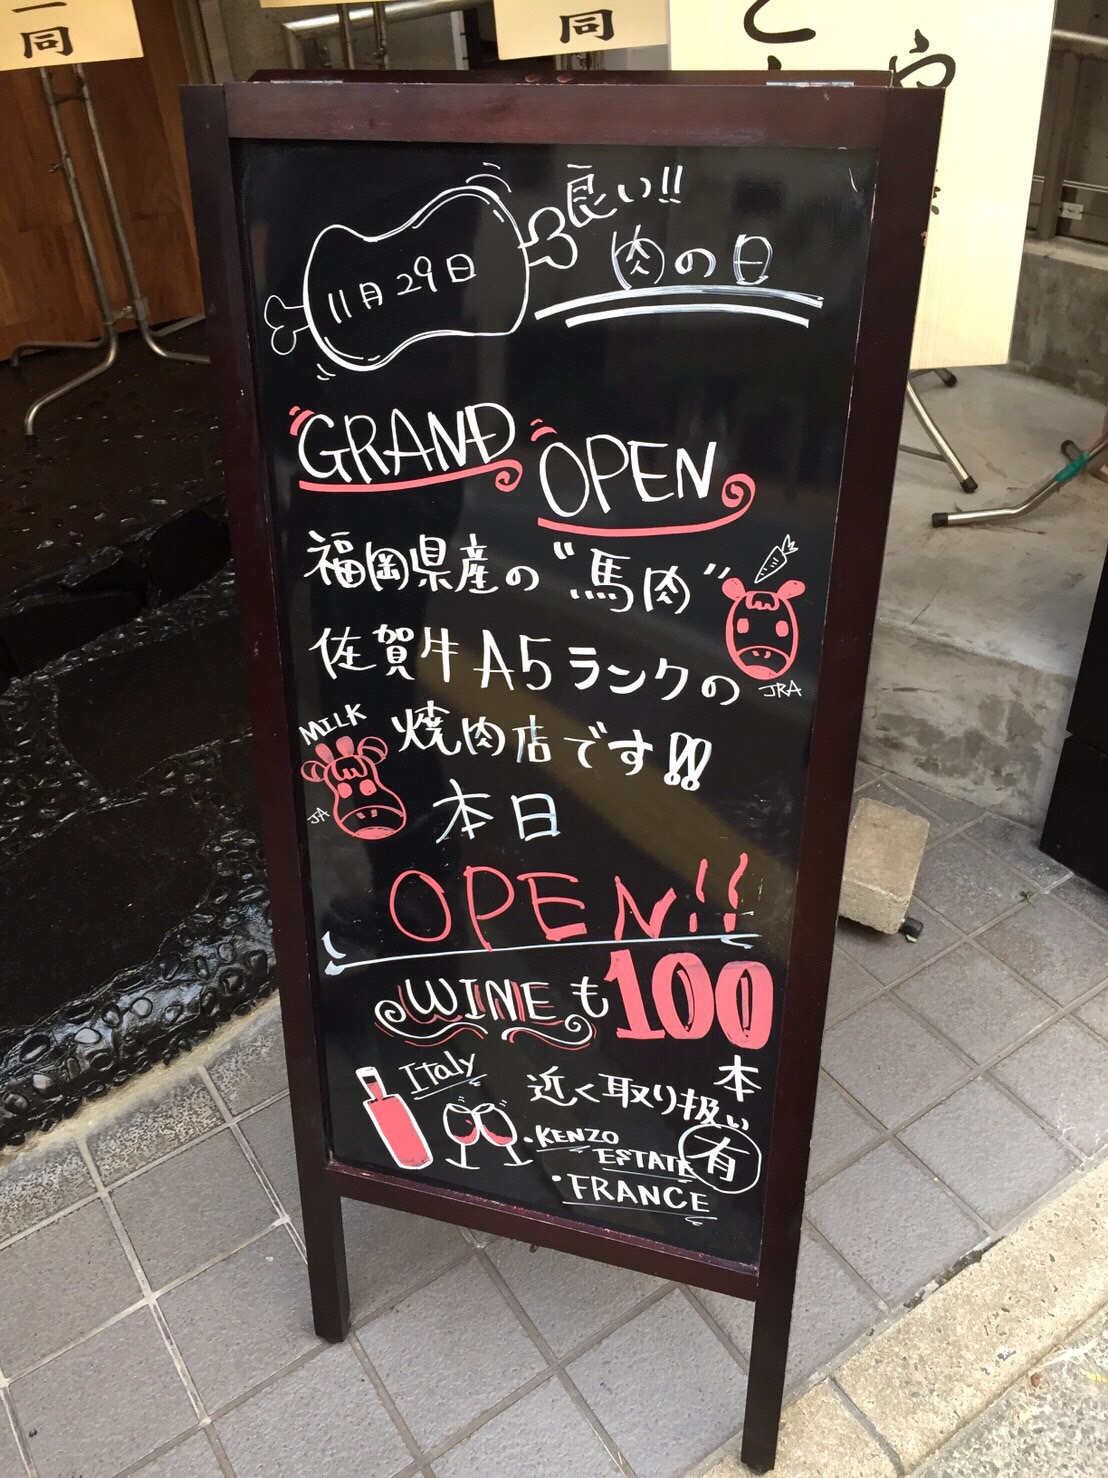 一同
同
11月29日
良い!!
肉の日
GRAND OPEN
福岡県産の"馬肉"
JRA
佐賀牛A5ランクの
MILK
焼肉店です!!
JA
本日
OPEN!!
WINEも100
本
Italy
近く取り扱い
有
・KENZO
ESTATE
・FRANCE